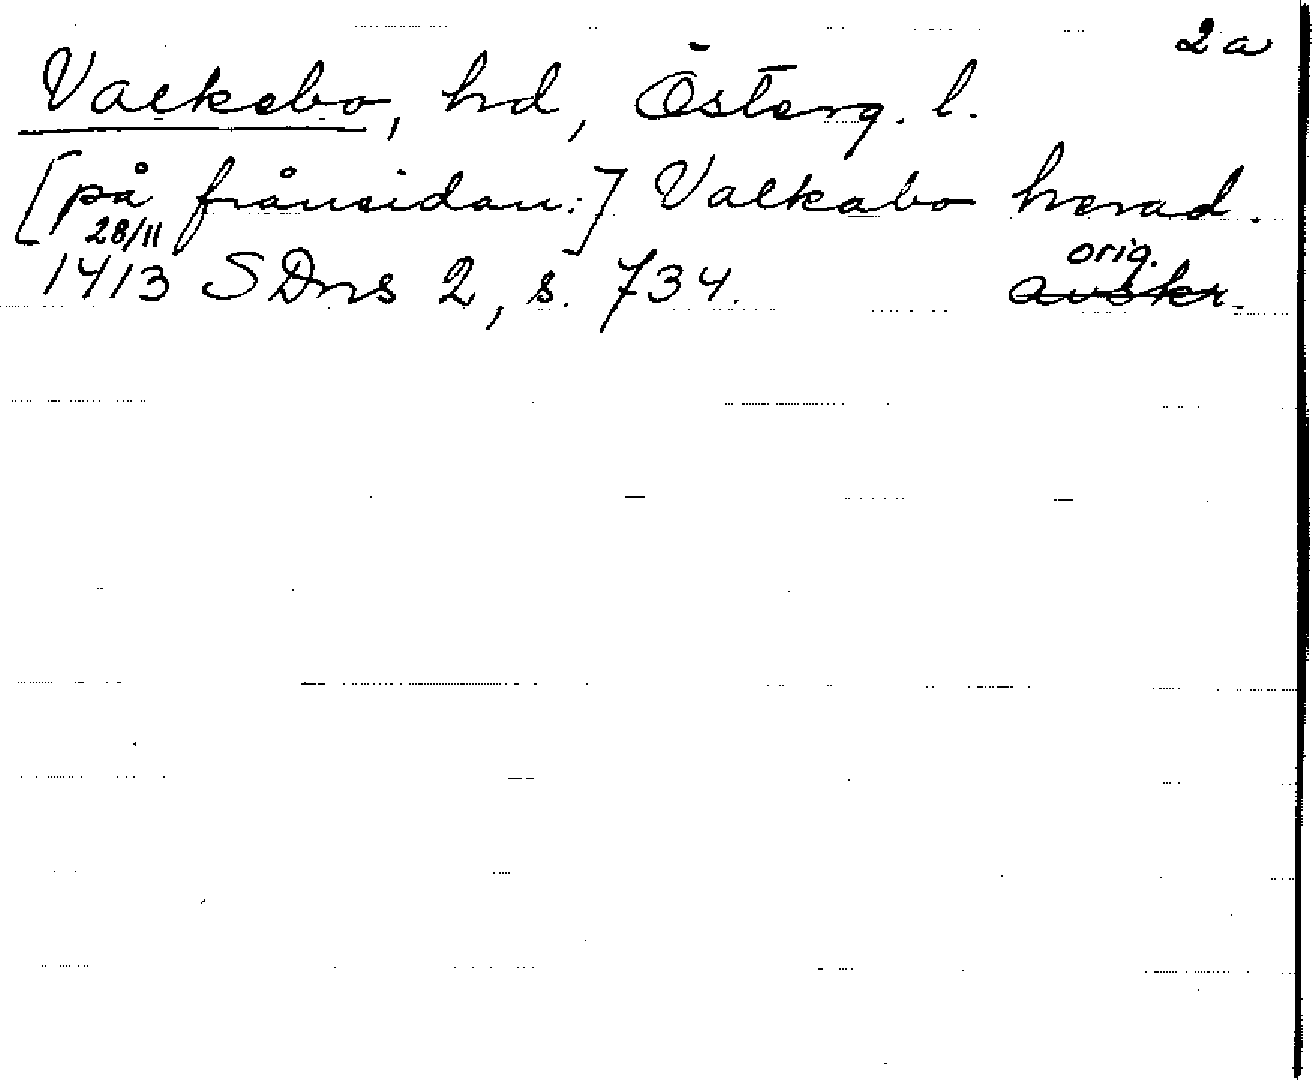 2a
Valkebo, hd, Österg. l.
[på frånsidan:] Valkabo hærad.
28/11 orig.
1413 SDns 2, s. 734. avskr.